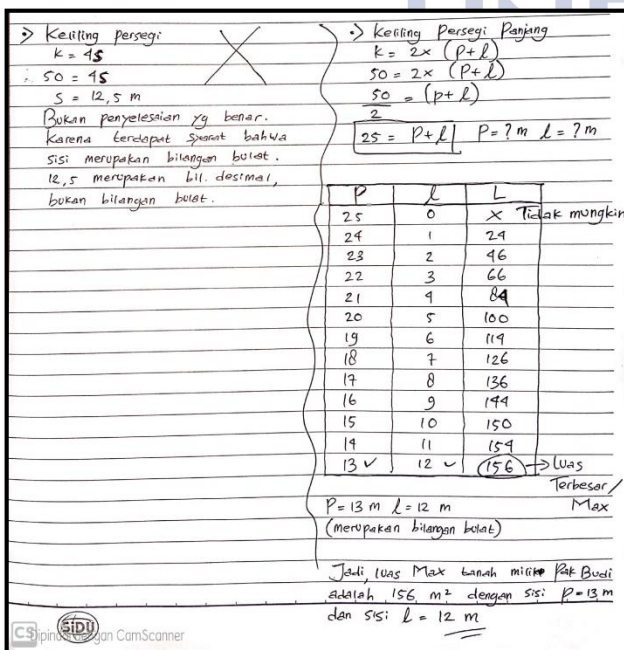 •> Keliling persegi
K = 4s
50 = 4s
S = 12,5 m
Bukan penyelesaian yg benar.
Karena terdapat syarat bahwa
sisi merupakan bilangan bulat.
12,5 merupakan bil. desimal,
bukan bilangan bulat.
•> Keliling Persegi Panjang
K = 2x (P+l)
50 = 2x (P+l)
50/2 = (P+l)
25 = P+l P=?m l=?m
P l L
25 0 X Tidak mungkin
24 1 24
23 2 46
22 3 66
21 4 84
20 5 100
19 6 114
18 7 126
17 8 136
16 9 144
15 10 150
14 11 154
13 ✓ 12 ✓ 156 → Luas
Terbesar/
Max
P = 13 m l = 12 m
(merupakan bilangan bulat)
Jadi, luas Max tanah milik Pak Budi
adalah 156 m² dengan sisi P = 13 m
dan sisi l = 12 m
SiDU
CS Dipindai dengan CamScanner